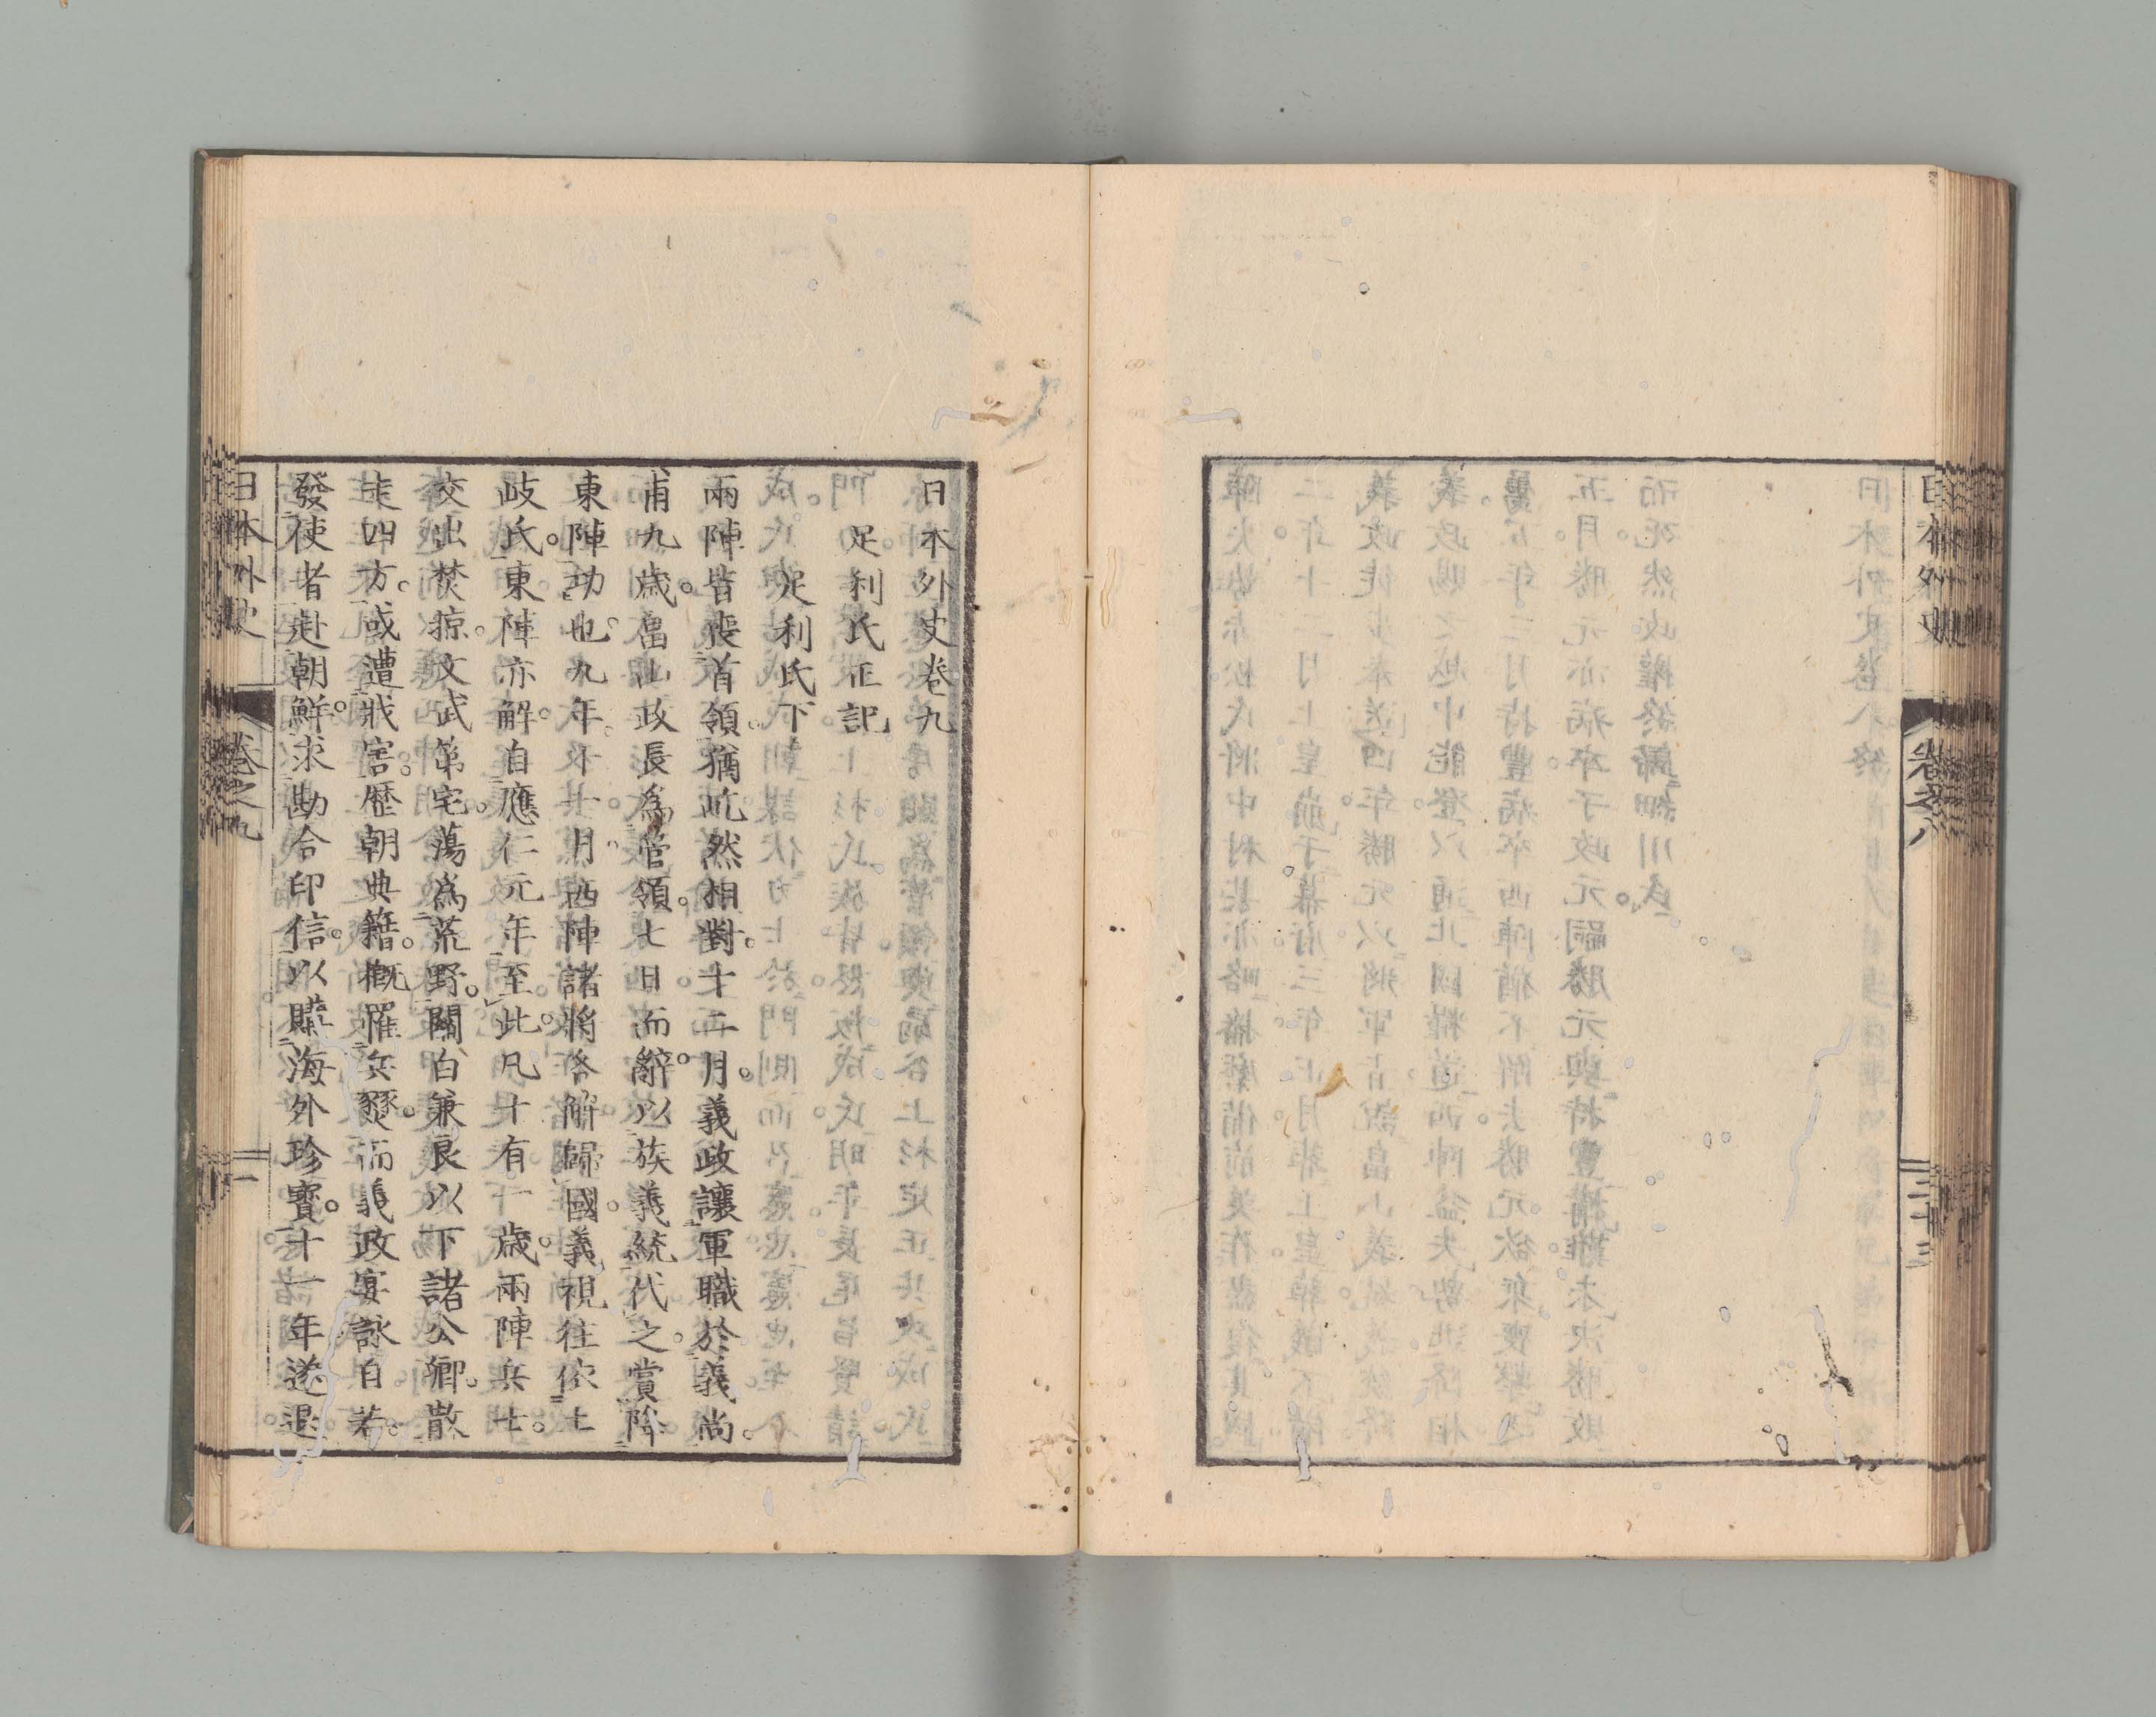 日本外史
卷之八
三十三
日本外史卷九
足利氏正記
足利氏下
兩陣皆喪首領。猶屹然相對。十二月。義政讓軍職於義尚。
甫九歲。畠山政長爲管領。七日而辭。以族義統代之。賞降
東陣功也。九年。十一月。西陣諸將各解歸國。義視往依土
岐氏。東陣亦解。自應仁元年至此。凡十有一歲。兩陣兵士。
交出焚掠。文武第宅。蕩爲荒野。關白兼良以下諸公卿。散
走四方。或遭戕害。歷朝典籍。概罹兵燹。而義政宴詠自若。
發使者赴朝鮮。求勘合印信。以購海外珍寶。十一年。遂退
日本外史
卷之九
一